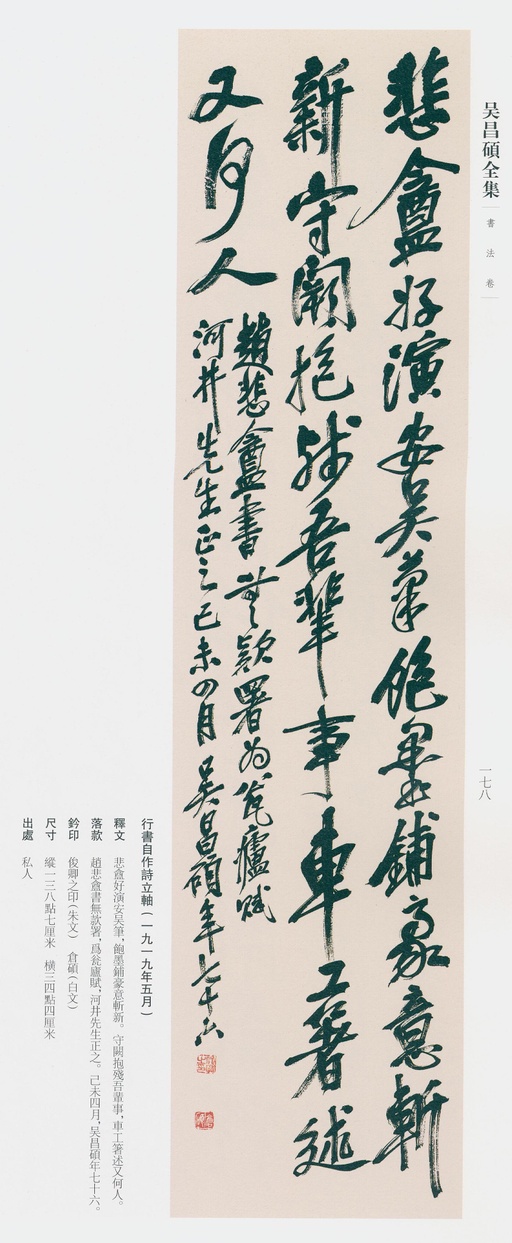 吴昌碩全集
書法卷
一七八
悲盦好演安吴筆飽墨鋪豪意斬
新守闕抱殘吾輩事車工箸述
又何人
趙悲盦書無款署為瓮廬賦
河井先生正之己未四月吴昌碩年七十六
行書自作詩立軸（一九一九年五月）
釋文 悲盦好演安吴筆，飽墨鋪豪意斬新。守闕抱殘吾輩事，車工箸述又何人。
落款 趙悲盦書無款署，爲瓮廬賦，河井先生正之。己未四月，吴昌碩年七十六。
鈐印 俊卿之印（朱文） 倉碩（白文）
尺寸 縱一三八點七厘米 横三四點四厘米
出處 私人